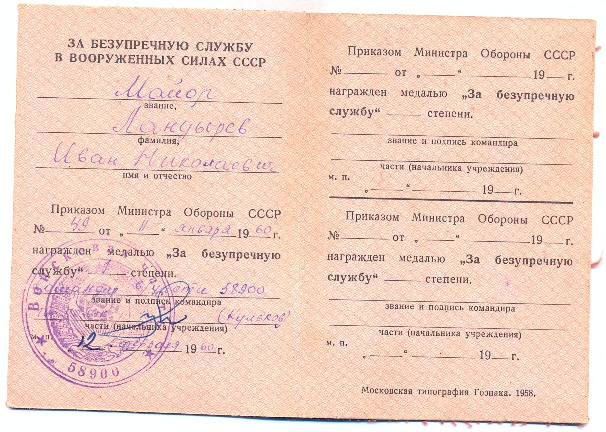 ЗА БЕЗУПРЕЧНУЮ СЛУЖБУ
В ВООРУЖЕННЫХ СИЛАХ СССР
Майор
звание,
Ландырев
фамилия,
Иван Николаевич
имя и отчество
Приказом Министра Обороны СССР
№ 40 от „ 11 “ января 1960 г.
награжден медалью „За безупречную
службу“ степени.
части 58900
звание и подпись командира
(Кульков)
части (начальника учреждения)
м. п. 12 февраля 1960 г.
Войсковая часть
58900
Приказом Министра Обороны СССР
№ — от „ — “ — 19 — г.
награжден медалью „За безупречную
службу“ — степени.
звание и подпись командира
части (начальника учреждения)
м. п. „ — “ — 19 — г.
Приказом Министра Обороны СССР
№ — от „ — “ — 19 — г.
награжден медалью „За безупречную
службу“ — степени.
звание и подпись командира
части (начальника учреждения)
м. п. „ — “ — 19 — г.
Московская типография Гознака. 1958.